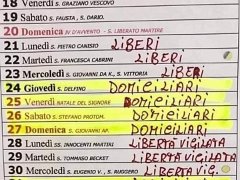 18 Venerdì S. GRAZIANO VESCOVO
19 Sabato S. FAUSTA, S. DARIO.
20 Domenica IV D'AVVENTO - S. LIBERATO MARTIRE
21 Lunedì S. PIETRO CANISIO LIBERI
22 Martedì S. FRANCESCA CABRINI LIBERI
23 Mercoledì S. GIOVANNI DA K., S. VITTORIA LIBERI
24 Giovedì S. DELFINO DOMICILIARI
25 Venerdì NATALE DEL SIGNORE DOMICILIARI
26 Sabato S. STEFANO PROTOM. DOMICILIARI
27 Domenica S. GIOVANNI AP. DOMICILIARI
28 Lunedì SS. INNOCENTI MARTIRI LIBERTÀ VIGILATA
29 Martedì S. TOMMASO BECKET LIBERTÀ VIGILATA
30 Mercoledì S. EUGENIO V., S. RUGGERO LIBERTÀ VIG.